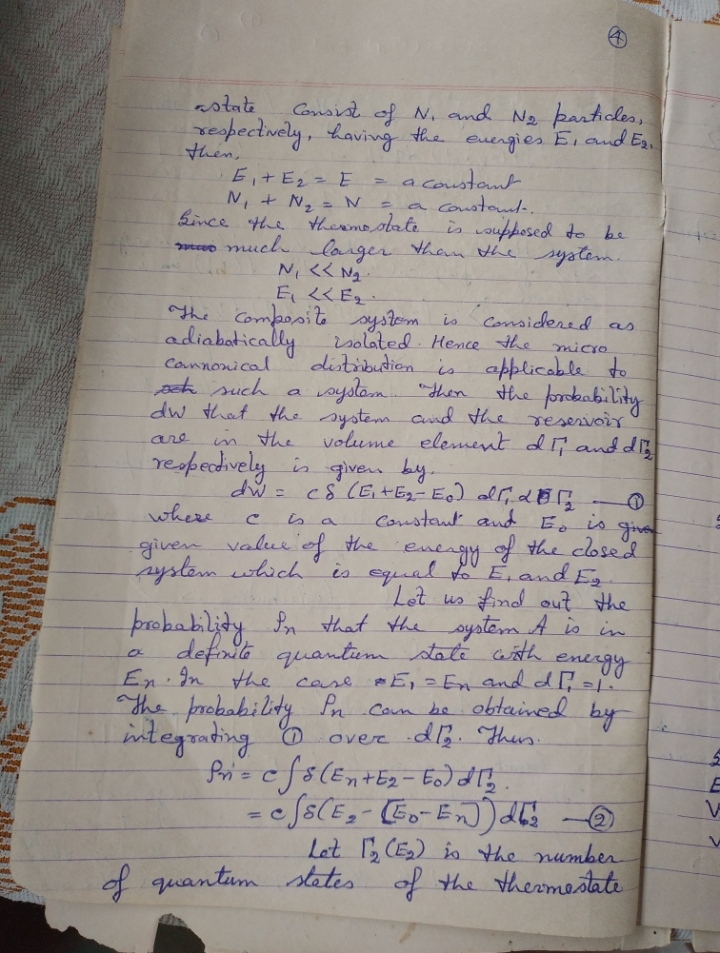 4
state consist of N₁ and N₂ particles,
respectively, having the energies E₁ and E₂.
then,
E₁ + E₂ = E = a constant
N₁ + N₂ = N = a constant.
Since the thermostate is supposed to be
much larger than the system.
N₁ << N₂.
E₁ << E₂.
The composite system is considered as
adiabatically isolated. Hence the micro
cannonical distribution is applicable to
such a system. Then the probability
dw that the system and the reservoir
are in the volume element dΓ₁ and dΓ₂
respectively is given by.
dw = cδ (E₁+E₂-E₀) dΓ₁ dΓ₂ — ①
where c is a constant and E₀ is give
given value of the energy of the closed
system which is equal to E₁ and E₂.
Let us find out the
probability Pn that the system A is in
a definite quantum state with energy
En. In the case E₁ = En and dΓ₁ = 1.
The probability Pn can be obtained by
integrating ① over dΓ₂. Thus.
Pn = c ∫ δ(En+E₂-E₀) dΓ₂.
= c ∫ δ(E₂ - (E₀-En)) dΓ₂ — ②
Let Γ₂(E₂) is the number
of quantum states of the thermostate